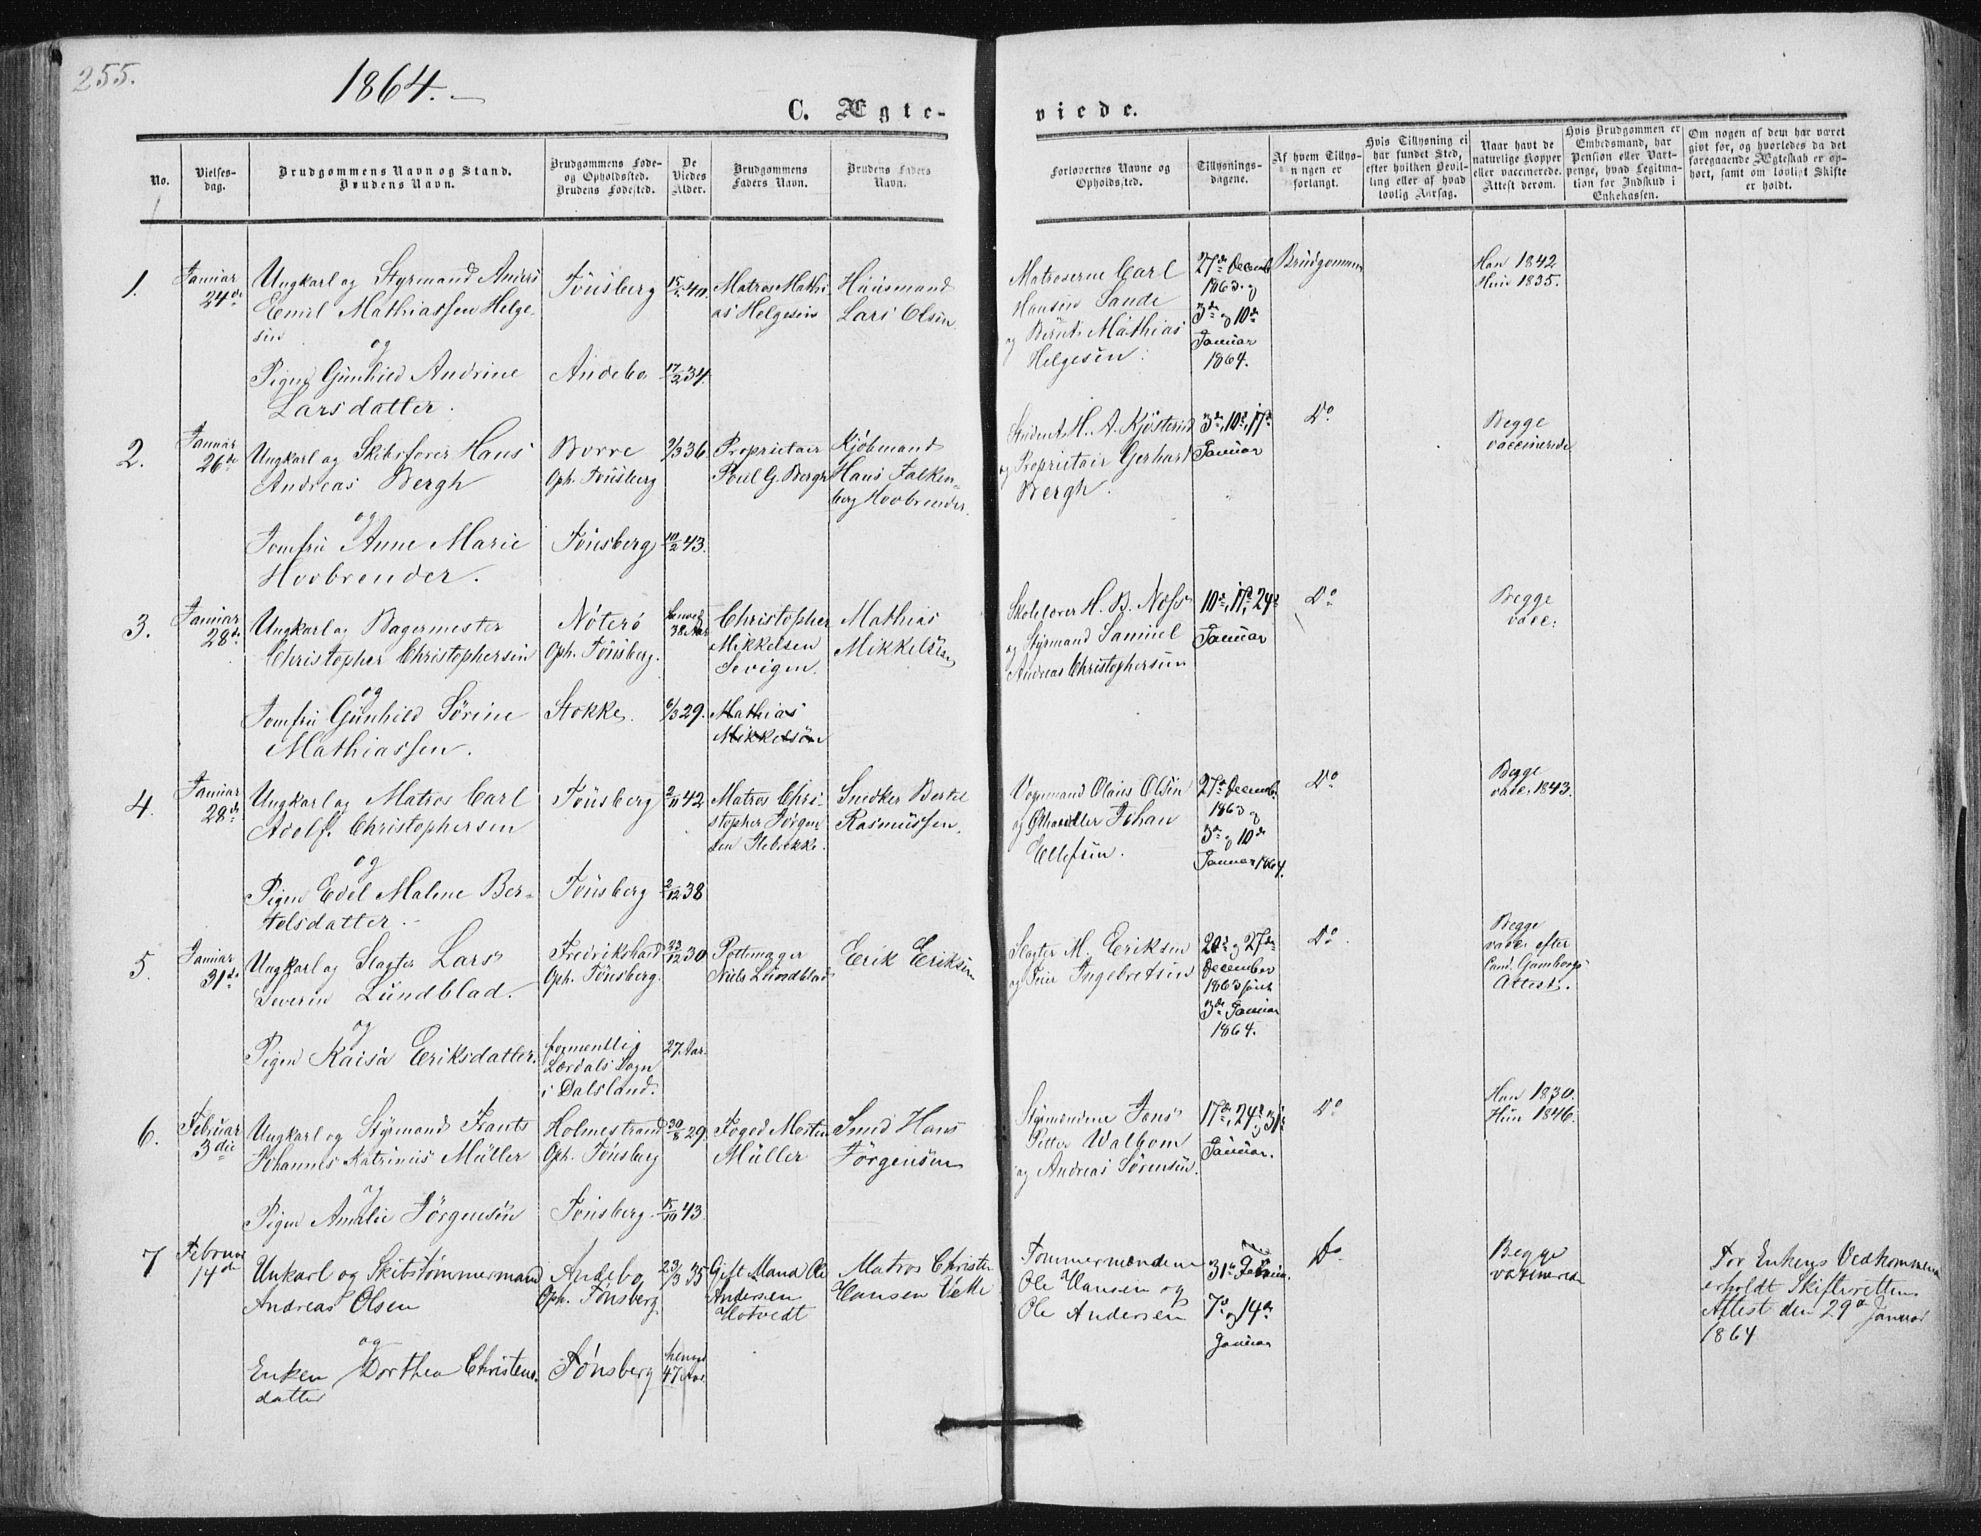 255.
1864.
C. Ægte-
viede.
No.
Vielses-
dag.
Brudgommens Navn og Stand.
Brudens Navn.
Brudgommens Føde-
og Opholdssted.
Brudens Fødested.
De
Viedes
Alder.
Brudgommens
Faders Navn.
Brudens Faders
Navn.
Forlovernes Navne og
Opholdssted.
Tillysnings-
dagene.
Af hvem Tillys-
n ngen er
forlangt.
Hvis Tillysning ei
har fundet Sted,
efter hvilken Bevil-
ling eller af hvad
lovlig Aarsag.
Naar havt de
naturlige Kopper
eller vaccinerede.
Attest derom.
Hvis Brudgommen er
Embedsmand, har
Pension eller Vart-
penge, hvad Legitima-
tion for Indskud i
Enkekassen.
Om nogen af dem har været
gift før, og hvorledes da det
foregaaende Ægteskab er op-
hørt, samt om lovligt Skifte
er holdt.
1.
Januar
24de
Ungkarl og Styrmand Anders
Emil Mathiassen Helge-
sen
og
Pigen Gunhild Andrine
Larsdatter.
Tønsberg
Andebo
40.
17/2 34.
Matros Mathi-
as Helgesen
Huusmand
Lars Olsen
Matroserne Carl
Hansen Sande
og Bernt Mathias
Helgesen.
27de Decemb.
1863 og
3de og 10de
Januar
1864.
Brudgommen
Han 1842
Hun 1835.
2.
Januar
26de
Ungkarl og Skibsfører Hans
Andreas Bergh
og
Jomfru Anne Marie
Hovbrender.
Borre
Oph. Tønsberg
Tønsberg
36.
10/2 43.
Proprietair
Poul G. Bergh
Kjøbmand
Hans Falken-
berg Hovbrender.
Student H. A.
og Proprietair Gerhard
Bergh.
3de, 10de, 17de
Januar
Do
Begge
vaccinerede
3.
Januar
28de
Ungkarl og Bagermester
Christopher Christophersen
og
Jomfru Gunhild Sørine
Mathiassen.
Nøterø
Oph. Tønsberg.
Stokke.
38 Aar
6/3 29.
Christopher
Mikkelsen
Mathias
Mikkelsøn
Mathias
Mikkelsen
Skolelærer H. B. Næss
og Styrmand Samuel
Andreas Christophersen
10de, 17de, 24de
Januar
Do
Begge
vacc.
4.
Januar
28de
Ungkarl og Matros Carl
Adolf Christophersen
og
Pigen Edel Malene Ber-
telsdatter.
Tønsberg
Tønsberg
2/11 42
2/12 38
Matros Chri-
stopher Jørgen-
sen
Snedker Bertel
Rasmussen.
Vognmand Olaus Olsen
og Johan
Ellefsen.
27de Decemb.
1863 og
3de og 10de
Januar 1864.
Do
Begge
vacc. 1843.
5.
Januar
31de
Ungkarl og Slagter Lars
Severin Lundblad.
og
Pigen Kaisa Eriksdatter.
Fredrikshald
Oph. Tønsberg.
formentlig
Lærdals Sogn
i Dalsland.
23/12 30
27 Aar.
Pottemager
Niels Lundblad
Erik Eriksen
Slagter M. Eriksen
og Peter Ingebretsen
20de og 27de
December
1863 samt
3de Januar
1864.
Do
Begge
vacc. efter
Cand. Gamborgs
Attest.
6.
Februar
3die
Ungkarl og Styrmand Frants
Johannes Katrinus Müller
og
Pigen Amalie Jørgensen
Holmestrand
Oph. Tønsberg
Tønsberg
30/8 29.
15/10 43.
Foged Morten
Müller
Smed Hans
Jørgensen
Styrmændene Jens
Petter Walbom
og Andreas Sørensen.
17de, 24de og 31te
Januar.
Do
Han 1830.
Hun 1846.
7
Februar
14de
Unkarl og Skibstømmermand
Andreas Olsen
og
Enken Dorthea Christens-
datter
Andebo
Oph. Tønsberg
Tønsberg
23/3 35
47 Aar
Gift Mand Ole
Andersen
Hotvedt
Matros Christen
Hansen Vette
Tømmermændene
Ole Hansen og
Ole Andersen
31te
7de og 14de
Januar
Do
Begge
vaccinerede
For Enkens Vedkommende
erholdt Skifterettens
Attest den 29de Januar
1864